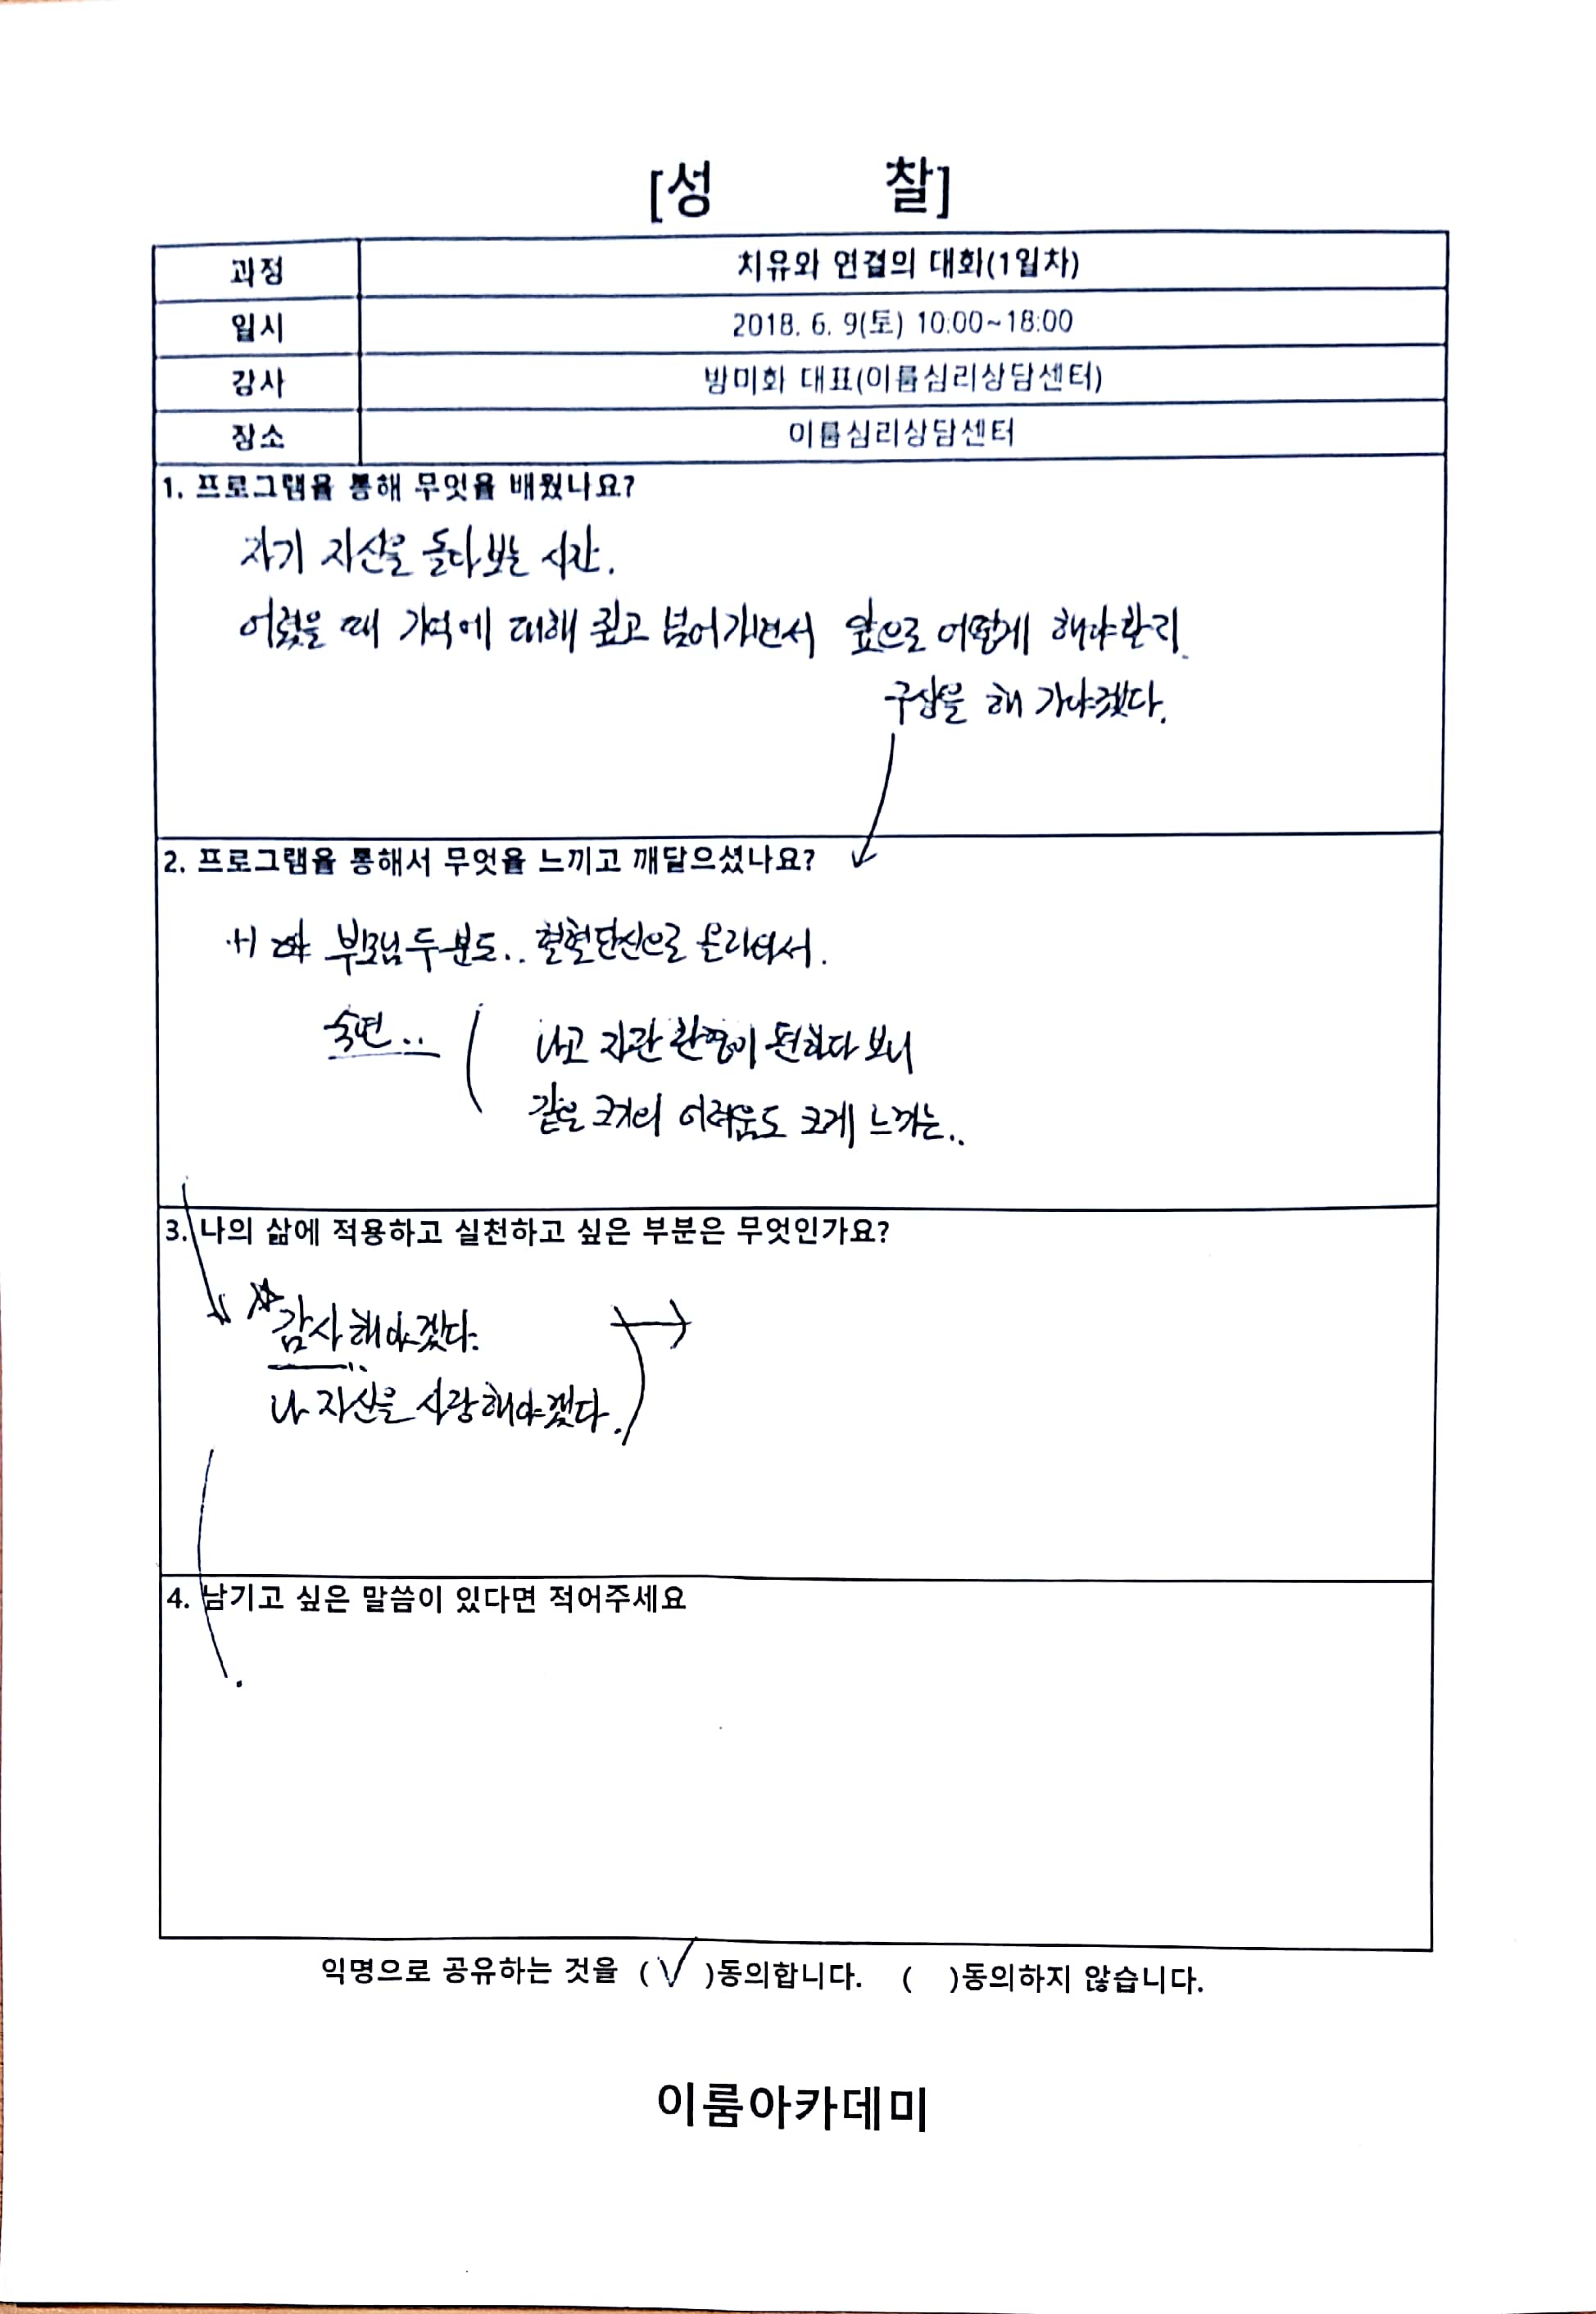 [성 찰]
과정 치유와 연결의 대화(1일차)
일시 2018. 6. 9(토) 10:00~18:00
강사 방미화 대표(이룸심리상담센터)
장소 이룸심리상담센터
1. 프로그램을 통해 무엇을 배웠나요?
자기 자신을 돌다 보는 시간.
어렸을 때 기억에 대해 짚고 넘어가면서 앞으로 어떻게 해야할지
구상을 해 가야겠다.
2. 프로그램을 통해서 무엇을 느끼고 깨달으셨나요?
부모님 두분도.. 혈혈단신으로 올라와서.
나고 자란 환경이 편하다 보니
같은 크기의 어려움도 크게 느끼는..
3. 나의 삶에 적용하고 실천하고 싶은 부분은 무엇인가요?
감사해야겠다.
나 자신을 사랑해야겠다.
4. 남기고 싶은 말씀이 있다면 적어주세요
익명으로 공유하는 것을 (V)동의합니다. ( )동의하지 않습니다.
이룸아카데미